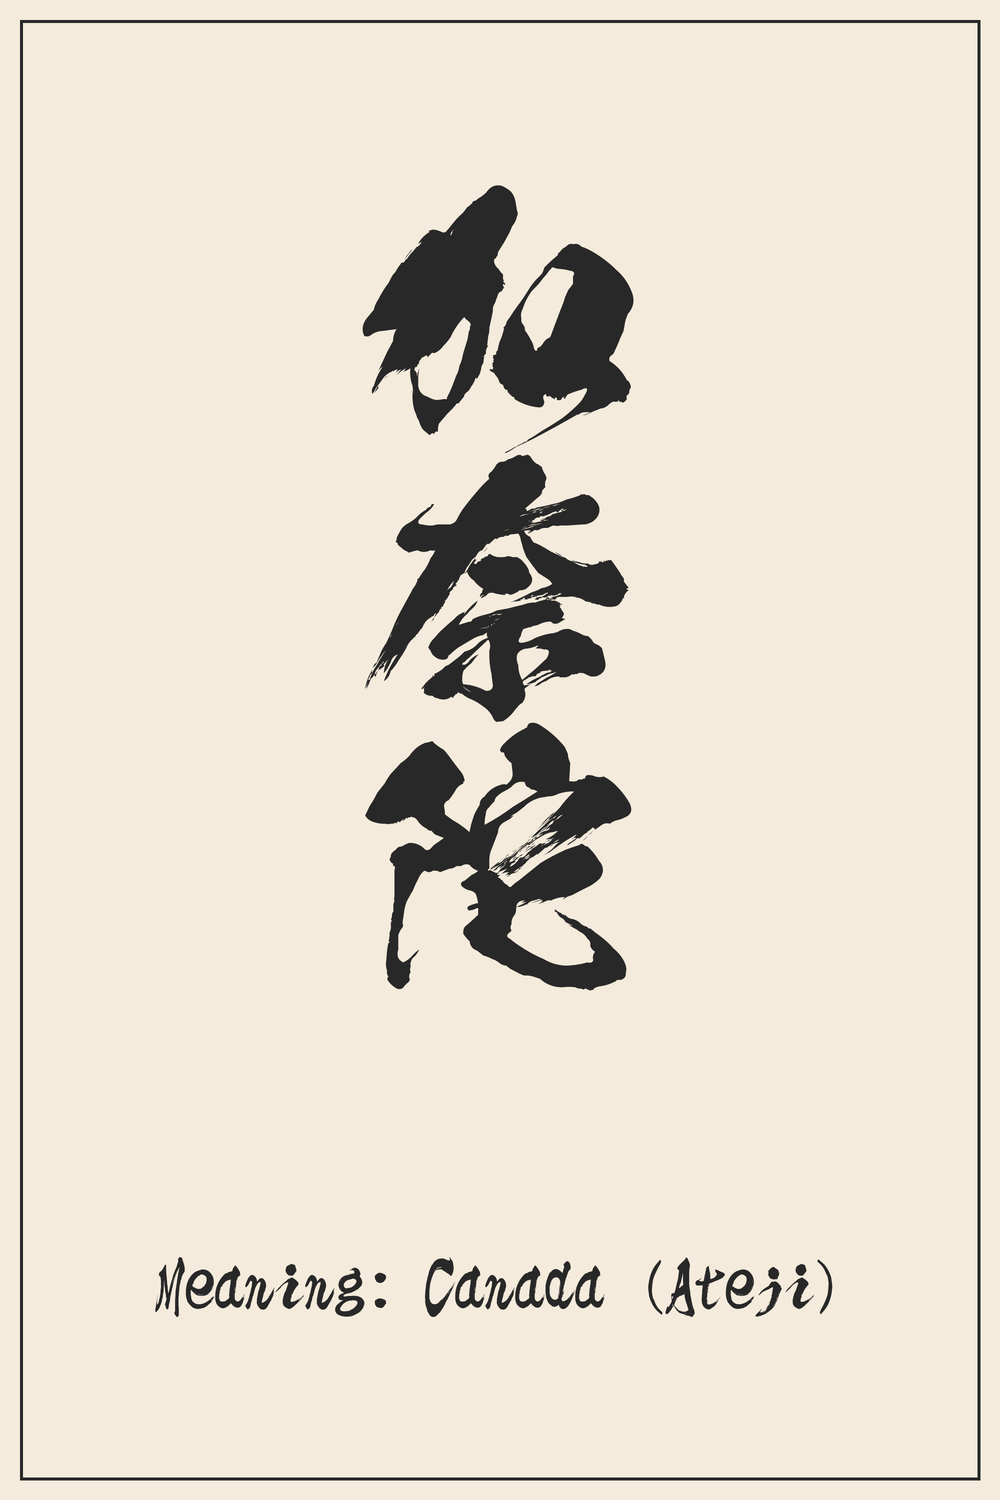 加奈陀
Meaning: Canada (Ateji)